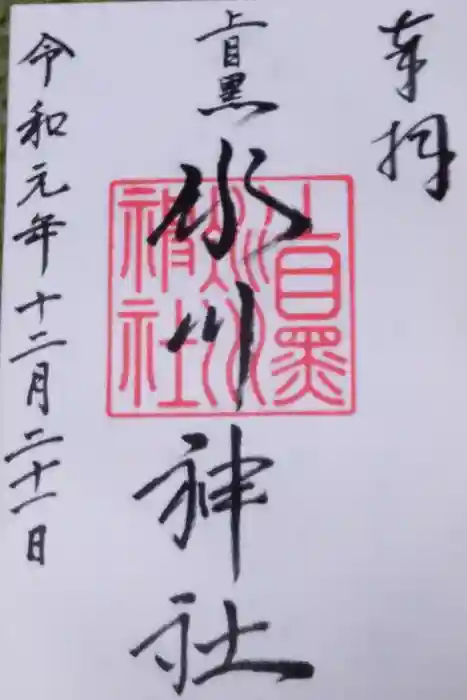 奉拝
上目黒
氷川神社
上目黒氷川神社
令和元年十二月二十一日